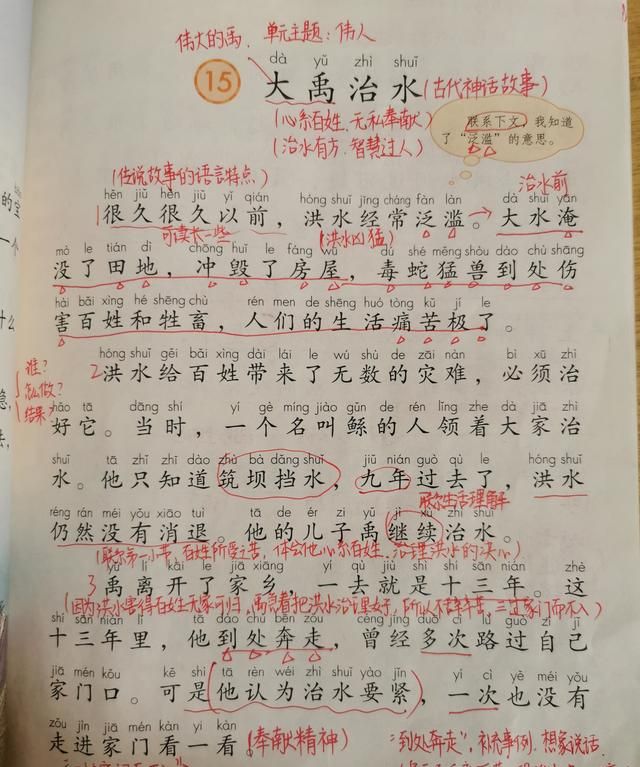 伟大的禹. 单元主题：伟人
dà yǔ zhì shuǐ
15 大禹治水(古代神话故事)
(心系百姓.无私奉献)
(治水有方.智慧过人)
联系下文，我知道
了“泛滥”的意思。
(传说故事的语言特点)
治水前
hěn jiǔ hěn jiǔ yǐ qián hóng shuǐ jīng cháng fàn làn dà shuǐ yān
1很久很久以前，洪水经常泛滥。→大水淹
可读长一些 (洪水凶猛)
mò le tián dì chōng huǐ le fáng wū dú shé měng shòu dào chù shāng
没了田地，冲毁了房屋，毒蛇猛兽到处伤
hài bǎi xìng hé shēng chù rén men de shēng huó tòng kǔ jí le
害百姓和牲畜，人们的生活痛苦极了。
hóng shuǐ gěi bǎi xìng dài lái le wú shù de zāi nàn bì xū zhì
2洪水给百姓带来了无数的灾难，必须治
谁?
怎么做?
结果
hǎo tā dāng shí yí gè míng jiào gǔn de rén lǐng zhe dà jiā zhì
好它。当时，一个名叫鲧的人领着大家治
shuǐ tā zhǐ zhī dào zhù bà dǎng shuǐ jiǔ nián guò qù le hóng shuǐ
水。他只知道筑坝挡水，九年过去了，洪水
réng rán méi yǒu xiāo tuì tā de ér zi yǔ jì xù zhì shuǐ
仍然没有消退。他的儿子禹继续治水。
(联系第一小节，百姓所受之苦，体会他心系百姓、治理洪水的决心)
yǔ lí kāi le jiā xiāng yí qù jiù shì shí sān nián zhè
3禹离开了家乡，一去就是十三年。这
shí sān nián lǐ tā dào chù bēn zǒu céng jīng duō cì lù guò zì jǐ
十三年里，他到处奔走，曾经多次路过自己
jiā mén kǒu kě shì tā rèn wéi zhì shuǐ yào jǐn yí cì yě méi yǒu
家门口。可是他认为治水要紧，一次也没有
zǒu jìn jiā mén kàn yí kàn
走进家门看一看。(奉献精神) “到处奔走”，补充事例. 想象说话.